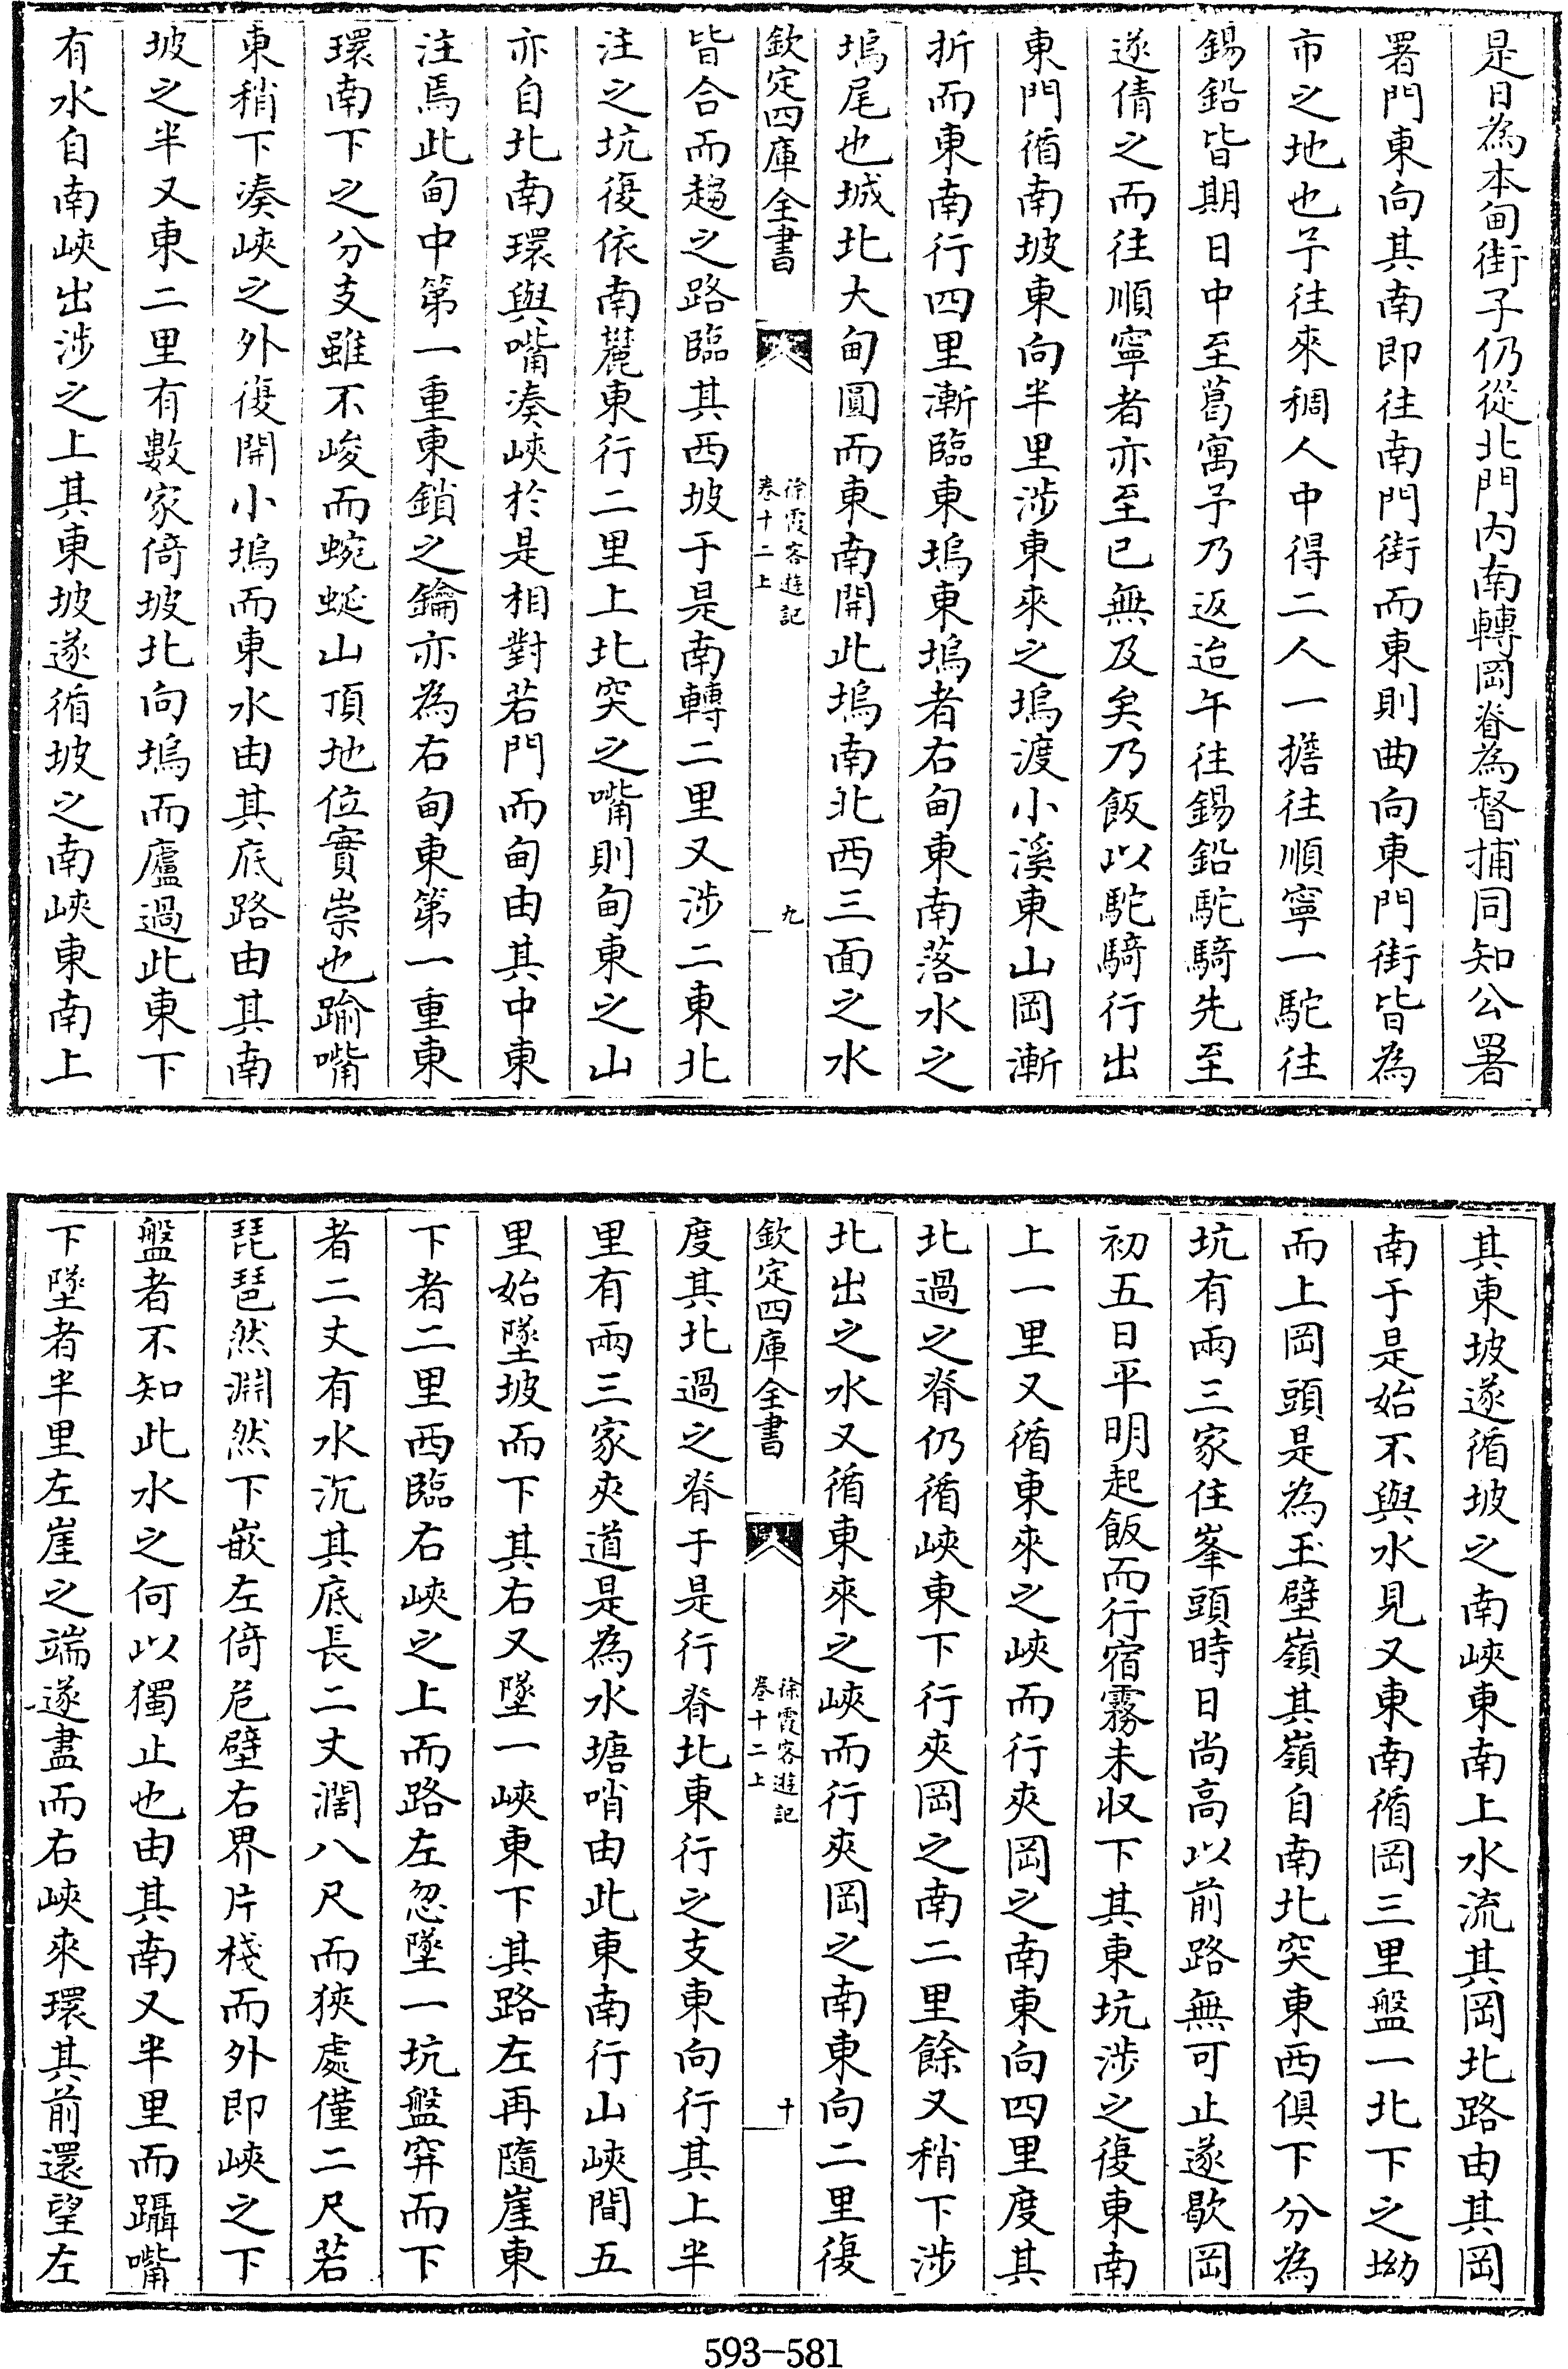 是日為本甸街子仍從北門内南轉岡脊為督捕同知公署
署門東向其南即往南門街而東則曲向東門街皆為
市之地也予往來稠人中得二人一擔往順寧一駝往
錫鉛皆期日中至葛寓予乃返迨午往錫鉛駝騎先至
遂倩之而往順寧者亦至已無及矣乃飯以駝騎行出
東門循南坡東向半里涉東來之塢渡小溪東山岡漸
折而東南行四里漸臨東塢東塢者右甸東南落水之
塢尾也城北大甸圓而東南開此塢南北西三面之水
欽定四庫全書
徐霞客遊記
卷十二上
九
皆合而趨之路臨其西坡于是南轉二里又涉二東北
注之坑復依南麓東行二里上北突之嘴則甸東之山
亦自北南環與嘴湊峽於是相對若門而甸由其中東
注焉此甸中第一重東鎖之鑰亦為右甸東第一重東
環南下之分支雖不峻而蜿蜒山頂地位實崇也踰嘴
東稍下湊峽之外復開小塢而東水由其底路由其南
坡之半又東二里有數家倚坡北向塢而廬過此東下
有水自南峽出涉之上其東坡遂循坡之南峽東南上
其東坡遂循坡之南峽東南上水流其岡北路由其岡
南于是始不與水見又東南循岡三里盤一北下之坳
而上岡頭是為玉壁嶺其嶺自南北突東西俱下分為
坑有兩三家住峯頭時日尚高以前路無可止遂歇岡
初五日平明起飯而行宿霧未收下其東坑涉之復東南
上一里又循東來之峽而行夾岡之南東向四里度其
北過之脊仍循峽東下行夾岡之南二里餘又稍下涉
北出之水又循東來之峽而行夾岡之南東向二里復
欽定四庫全書
徐霞客遊記
卷十二上
十
度其北過之脊于是行脊北東行之支東向行其上半
里有兩三家夾道是為水塘哨由此東南行山峽間五
里始墜坡而下其右又墜一峽東下其路左再隨崖東
下者二里西臨右峽之上而路左忽墜一坑盤穽而下
者二丈有水沉其底長二丈濶八尺而狹處僅二尺若
琵琶然淵然下嵌左倚危壁右界片棧而外即峽之下
盤者不知此水之何以獨止也由其南又半里而躡嘴
下墜者半里左崖之端遂盡而右峽來環其前還望左
593-581